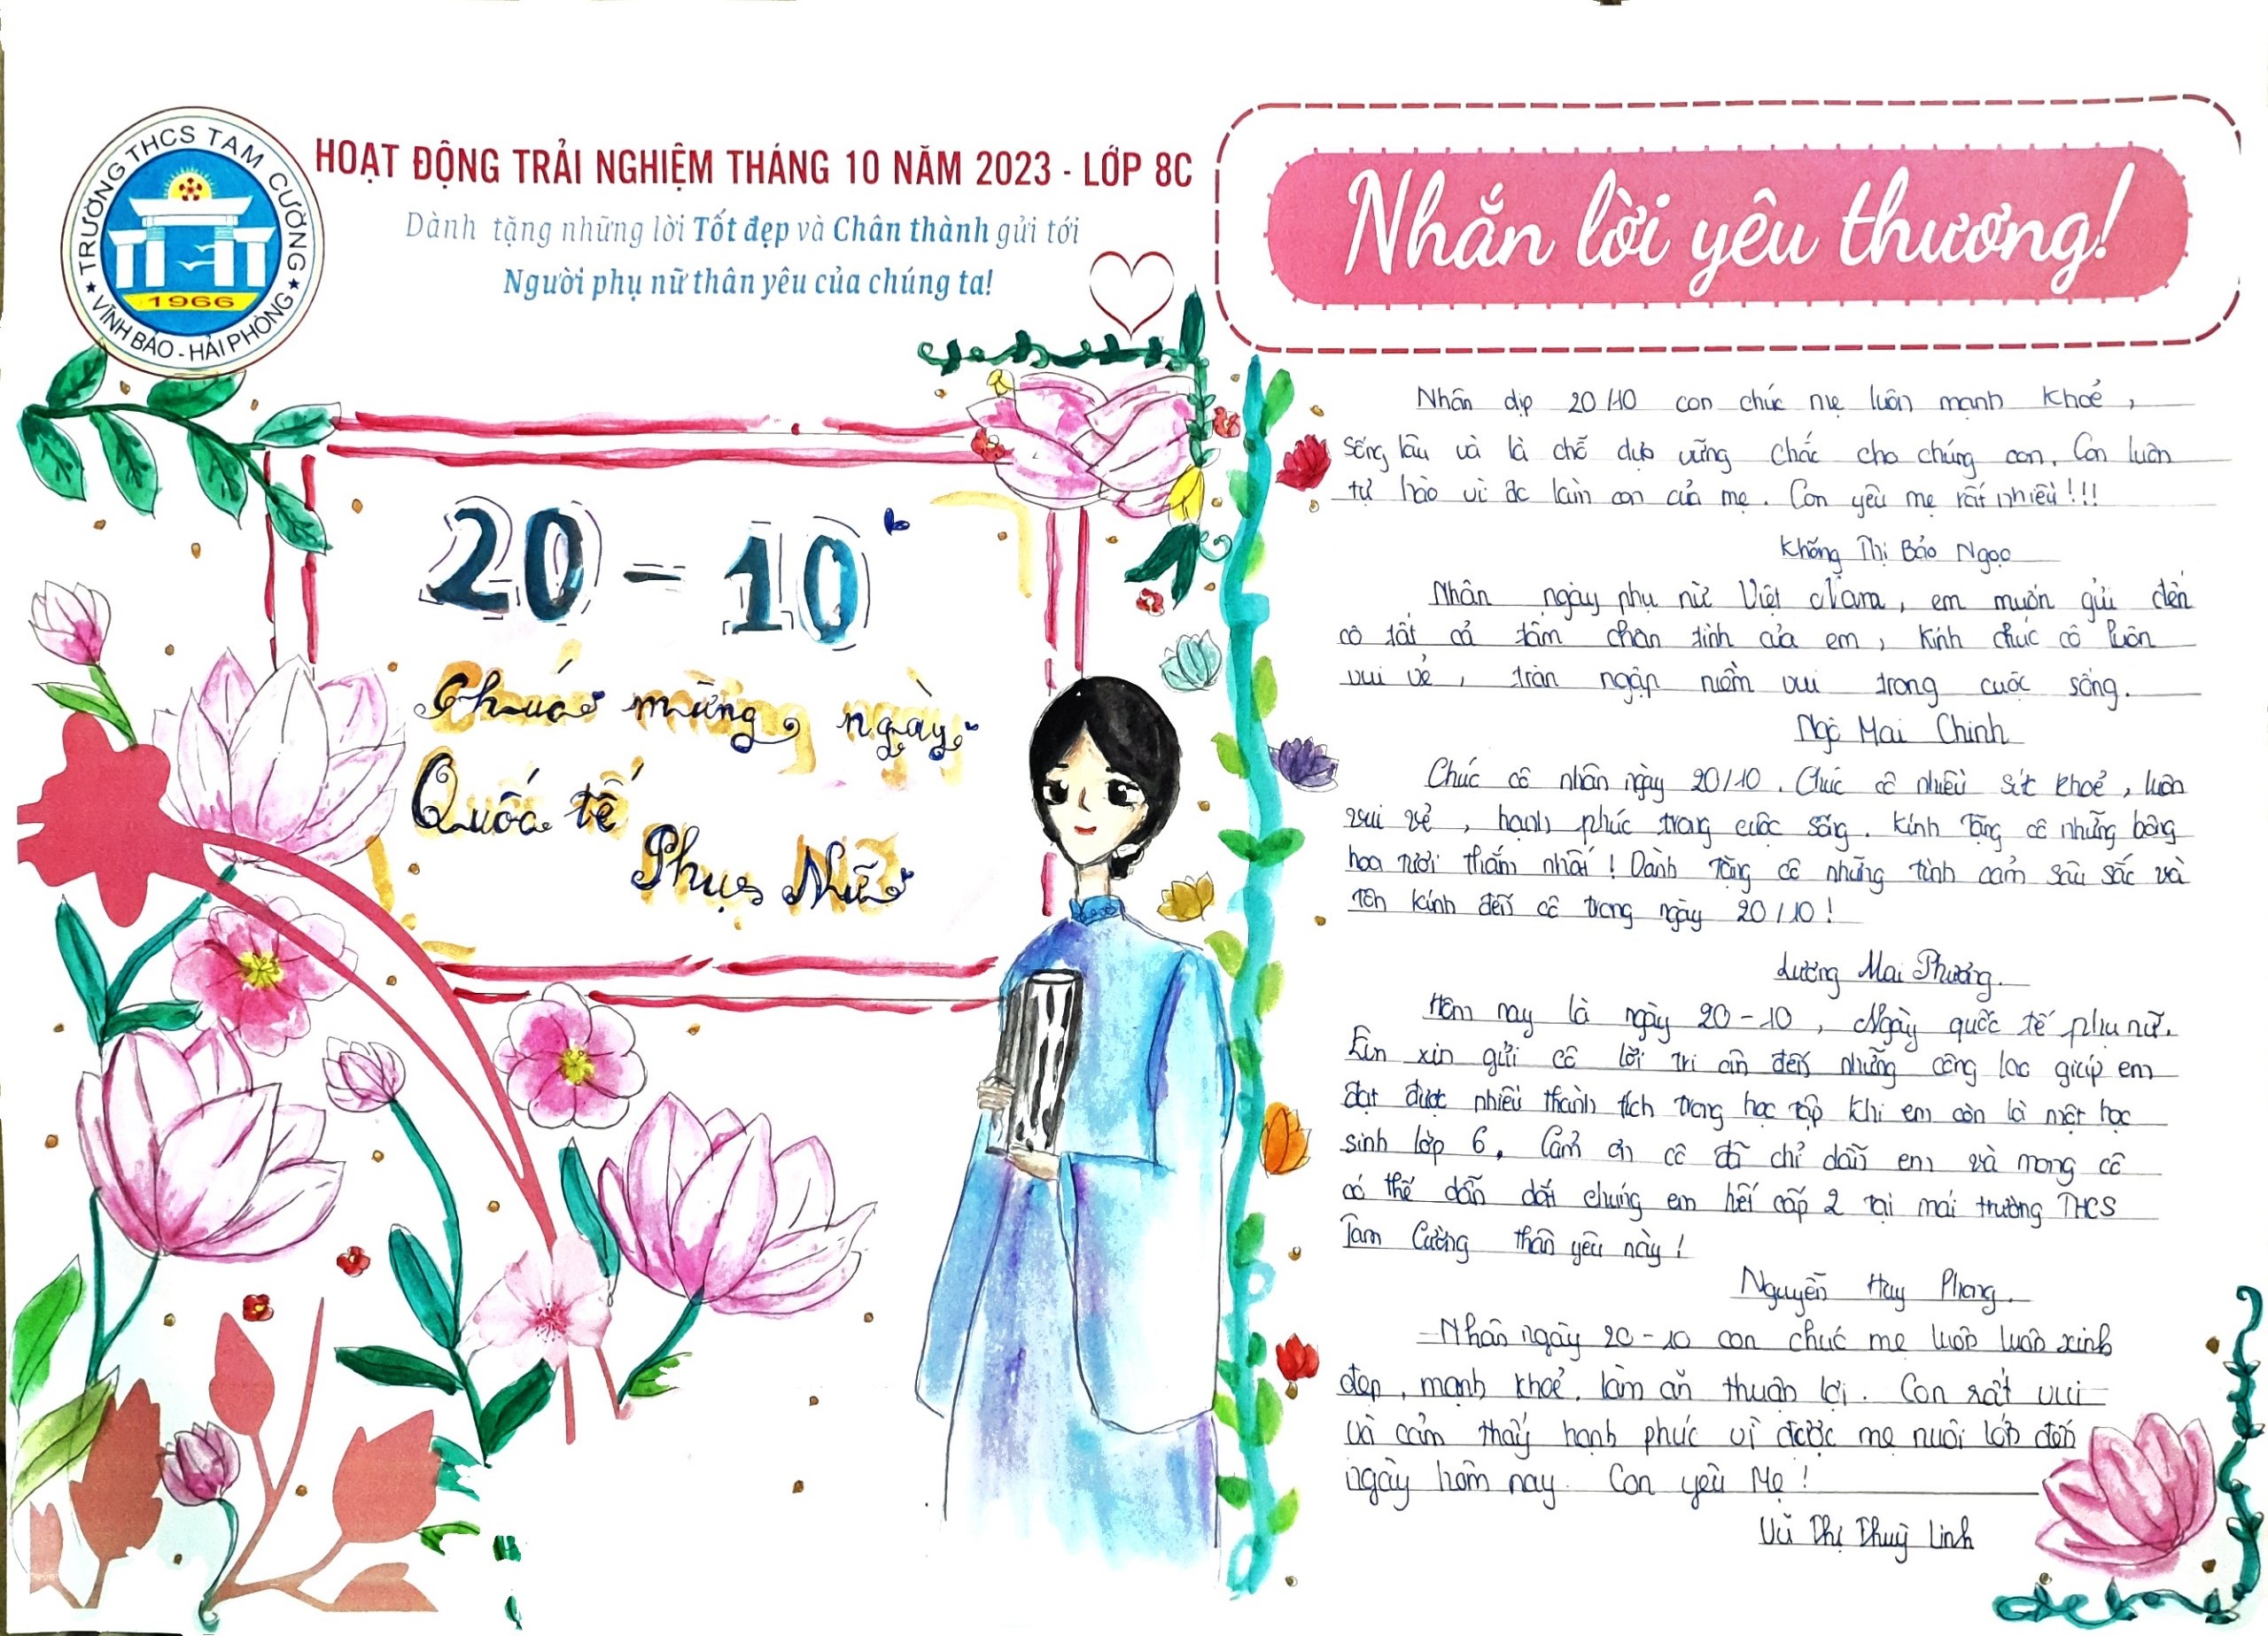 TRƯỜNG THCS TAM CƯỜNG
1966
VĨNH BẢO - HẢI PHÒNG
HOẠT ĐỘNG TRẢI NGHIỆM THÁNG 10 NĂM 2023 - LỚP 8C
Dành tặng những lời Tốt đẹp và Chân thành gửi tới
Người phụ nữ thân yêu của chúng ta!
20 - 10
Chúc mừng ngày
Quốc tế
Phụ Nữ
Nhắn lời yêu thương!
Nhân dịp 20/10 con chúc mẹ luôn mạnh khoẻ,
sống lâu và là chỗ dựa vững chắc cho chúng con. Con luôn
tự hào vì đc làm con của mẹ. Con yêu mẹ rất nhiều!!!
Khổng Thị Bảo Ngọc
Nhân ngày phụ nữ Việt Nam, em muốn gửi đến
cô tất cả tâm chân tình của em, kính chúc cô luôn
vui vẻ, tràn ngập niềm vui trong cuộc sống.
Ngô Mai Chinh
Chúc cô nhân ngày 20/10. Chúc cô nhiều sức khoẻ, luôn
vui vẻ, hạnh phúc trong cuộc sống. Kính tặng cô những bông
hoa tươi thắm nhất! Dành tặng cô những tình cảm sâu sắc và
tôn kính đến cô trong ngày 20/10!
Lương Mai Phương.
Hôm nay là ngày 20-10, Ngày quốc tế phụ nữ.
Em xin gửi cô lời tri ân đến những công lao giúp em
đạt được nhiều thành tích trong học tập khi em còn là một học
sinh lớp 6. Cảm ơn cô đã chỉ dẫn em và mong cô
có thể dẫn dắt chúng em hết cấp 2 tại mái trường THCS
Tam Cường thân yêu này!
Nguyễn Huy Phong.
Nhân ngày 20-10 con chúc mẹ luôn luôn xinh
đẹp, mạnh khoẻ, làm ăn thuận lợi. Con rất vui
và cảm thấy hạnh phúc vì được mẹ nuôi lớn đến
ngày hôm nay. Con yêu Mẹ!
Vũ Thị Thuỳ Linh